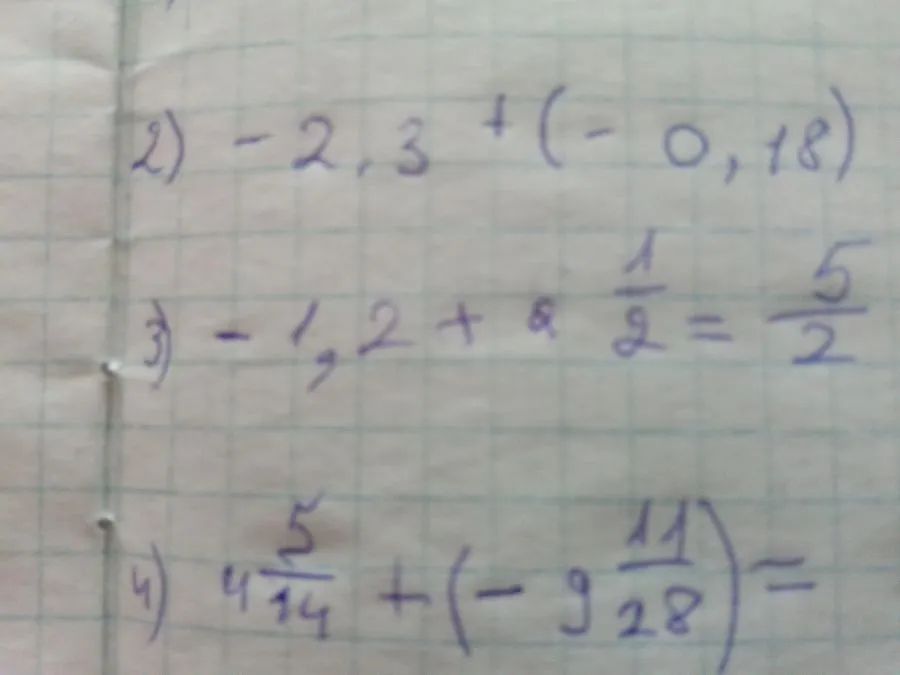 2) - 2,3 + (- 0,18)
3) - 1,2 + 2 1/2 = 5/2
4) 4 5/14 + (- 9 11/28) =